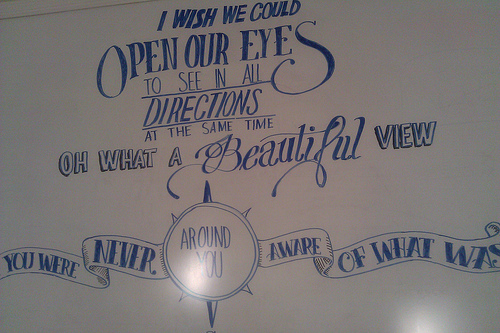 I WISH WE COULD
OPEN OUR EYES
TO SEE IN ALL
DIRECTIONS
AT THE SAME TIME
OH WHAT A Beautiful VIEW
YOU WERE NEVER AWARE OF WHAT WAS
AROUND
YOU